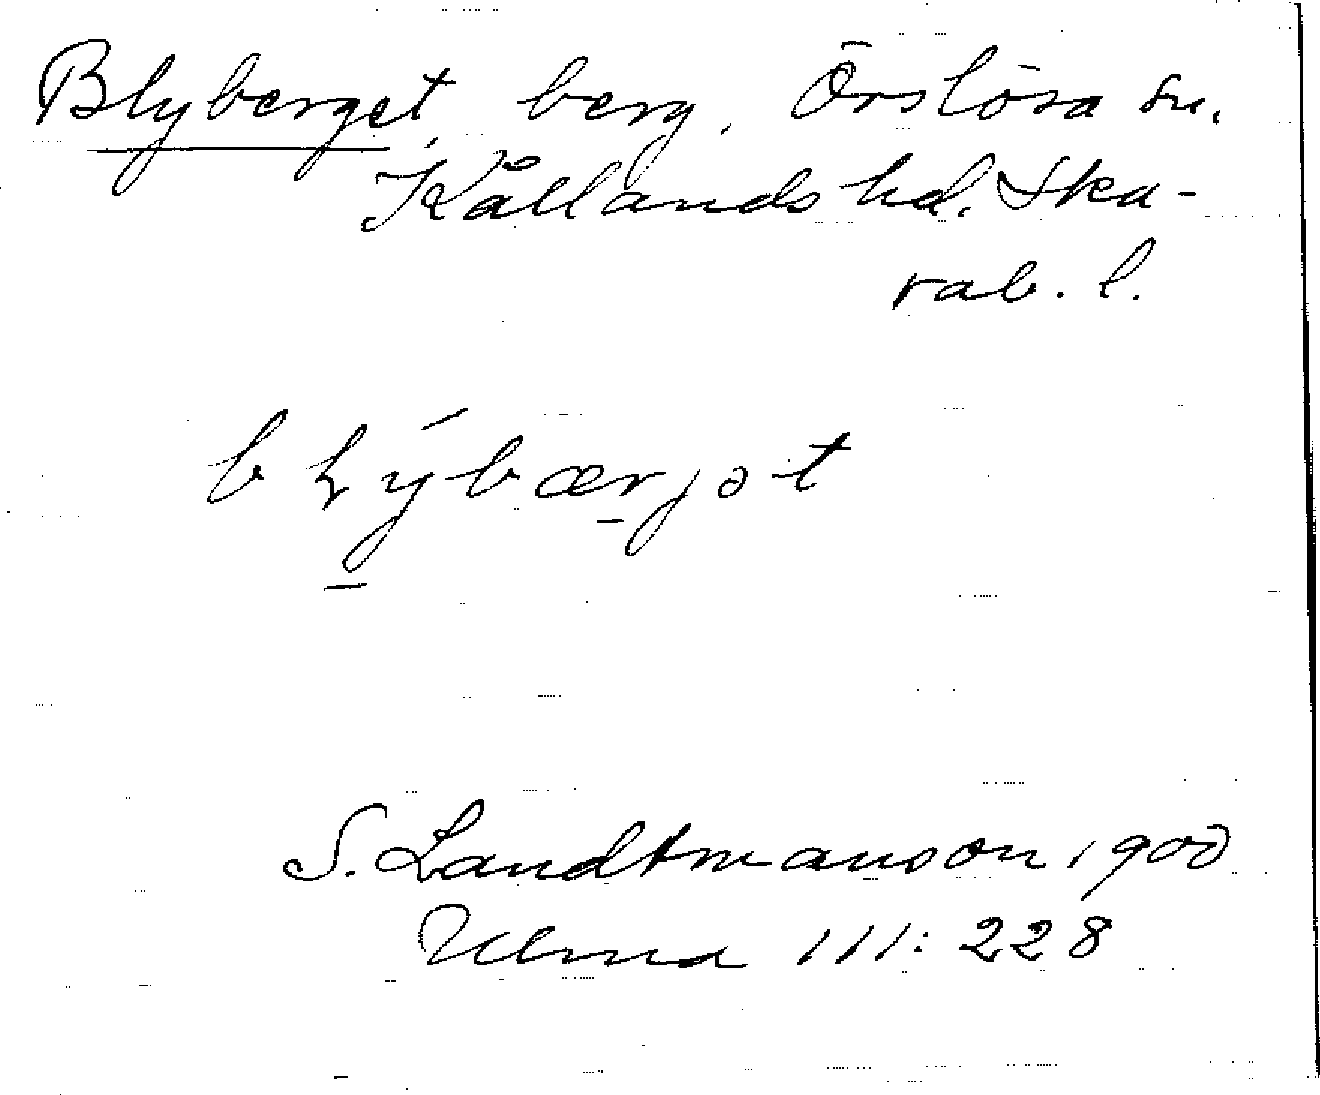 Blyberget, berg. Örslösa sn.
Kållands hd. Ska-
rab. l.
bɫýbærjət
S. Landtmanson 1900
Ulma 111:228